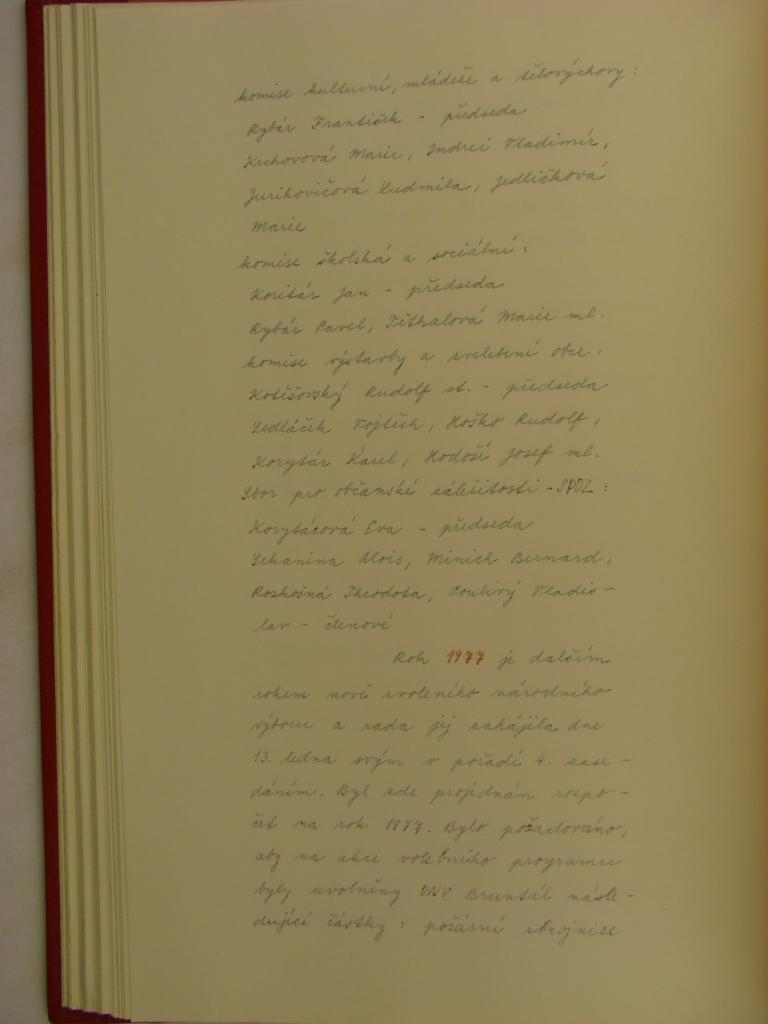 komise kulturní, mládeže a tělovýchovy:
Rybár František - předseda
Krchovová Marie, Indrei Vladimír,
Jurikovičová Ludmila, Jedličková
Marie
komise školská a sociální:
Koritár Jan - předseda
Rybár Pavel, Těthalová Marie ml.
komise výstavby a zvelebení obce:
Kotěšovský Rudolf st. - předseda
Sedláček Vojtěch, Hoško Rudolf,
Korytár Karel, Hodoší Josef ml.
Sbor pro občanské záležitosti - SPOZ:
Korytárová Eva - předseda
Sekanina Alois, Minich Bernard,
Rozkošná Theodota, Poulivý Vladis-
lav - členové
Rok 1977 je dalším
rokem nově zvoleného národního
výboru a rada jej zahájila dne
13. ledna svým v pořadí 4. zase-
dáním. Byl zde projednán rozpo-
čet na rok 1977. Bylo požadováno,
aby na akce volebního programu
byly uvolněny ONV Bruntál násle-
dující částky: požární zbrojnice